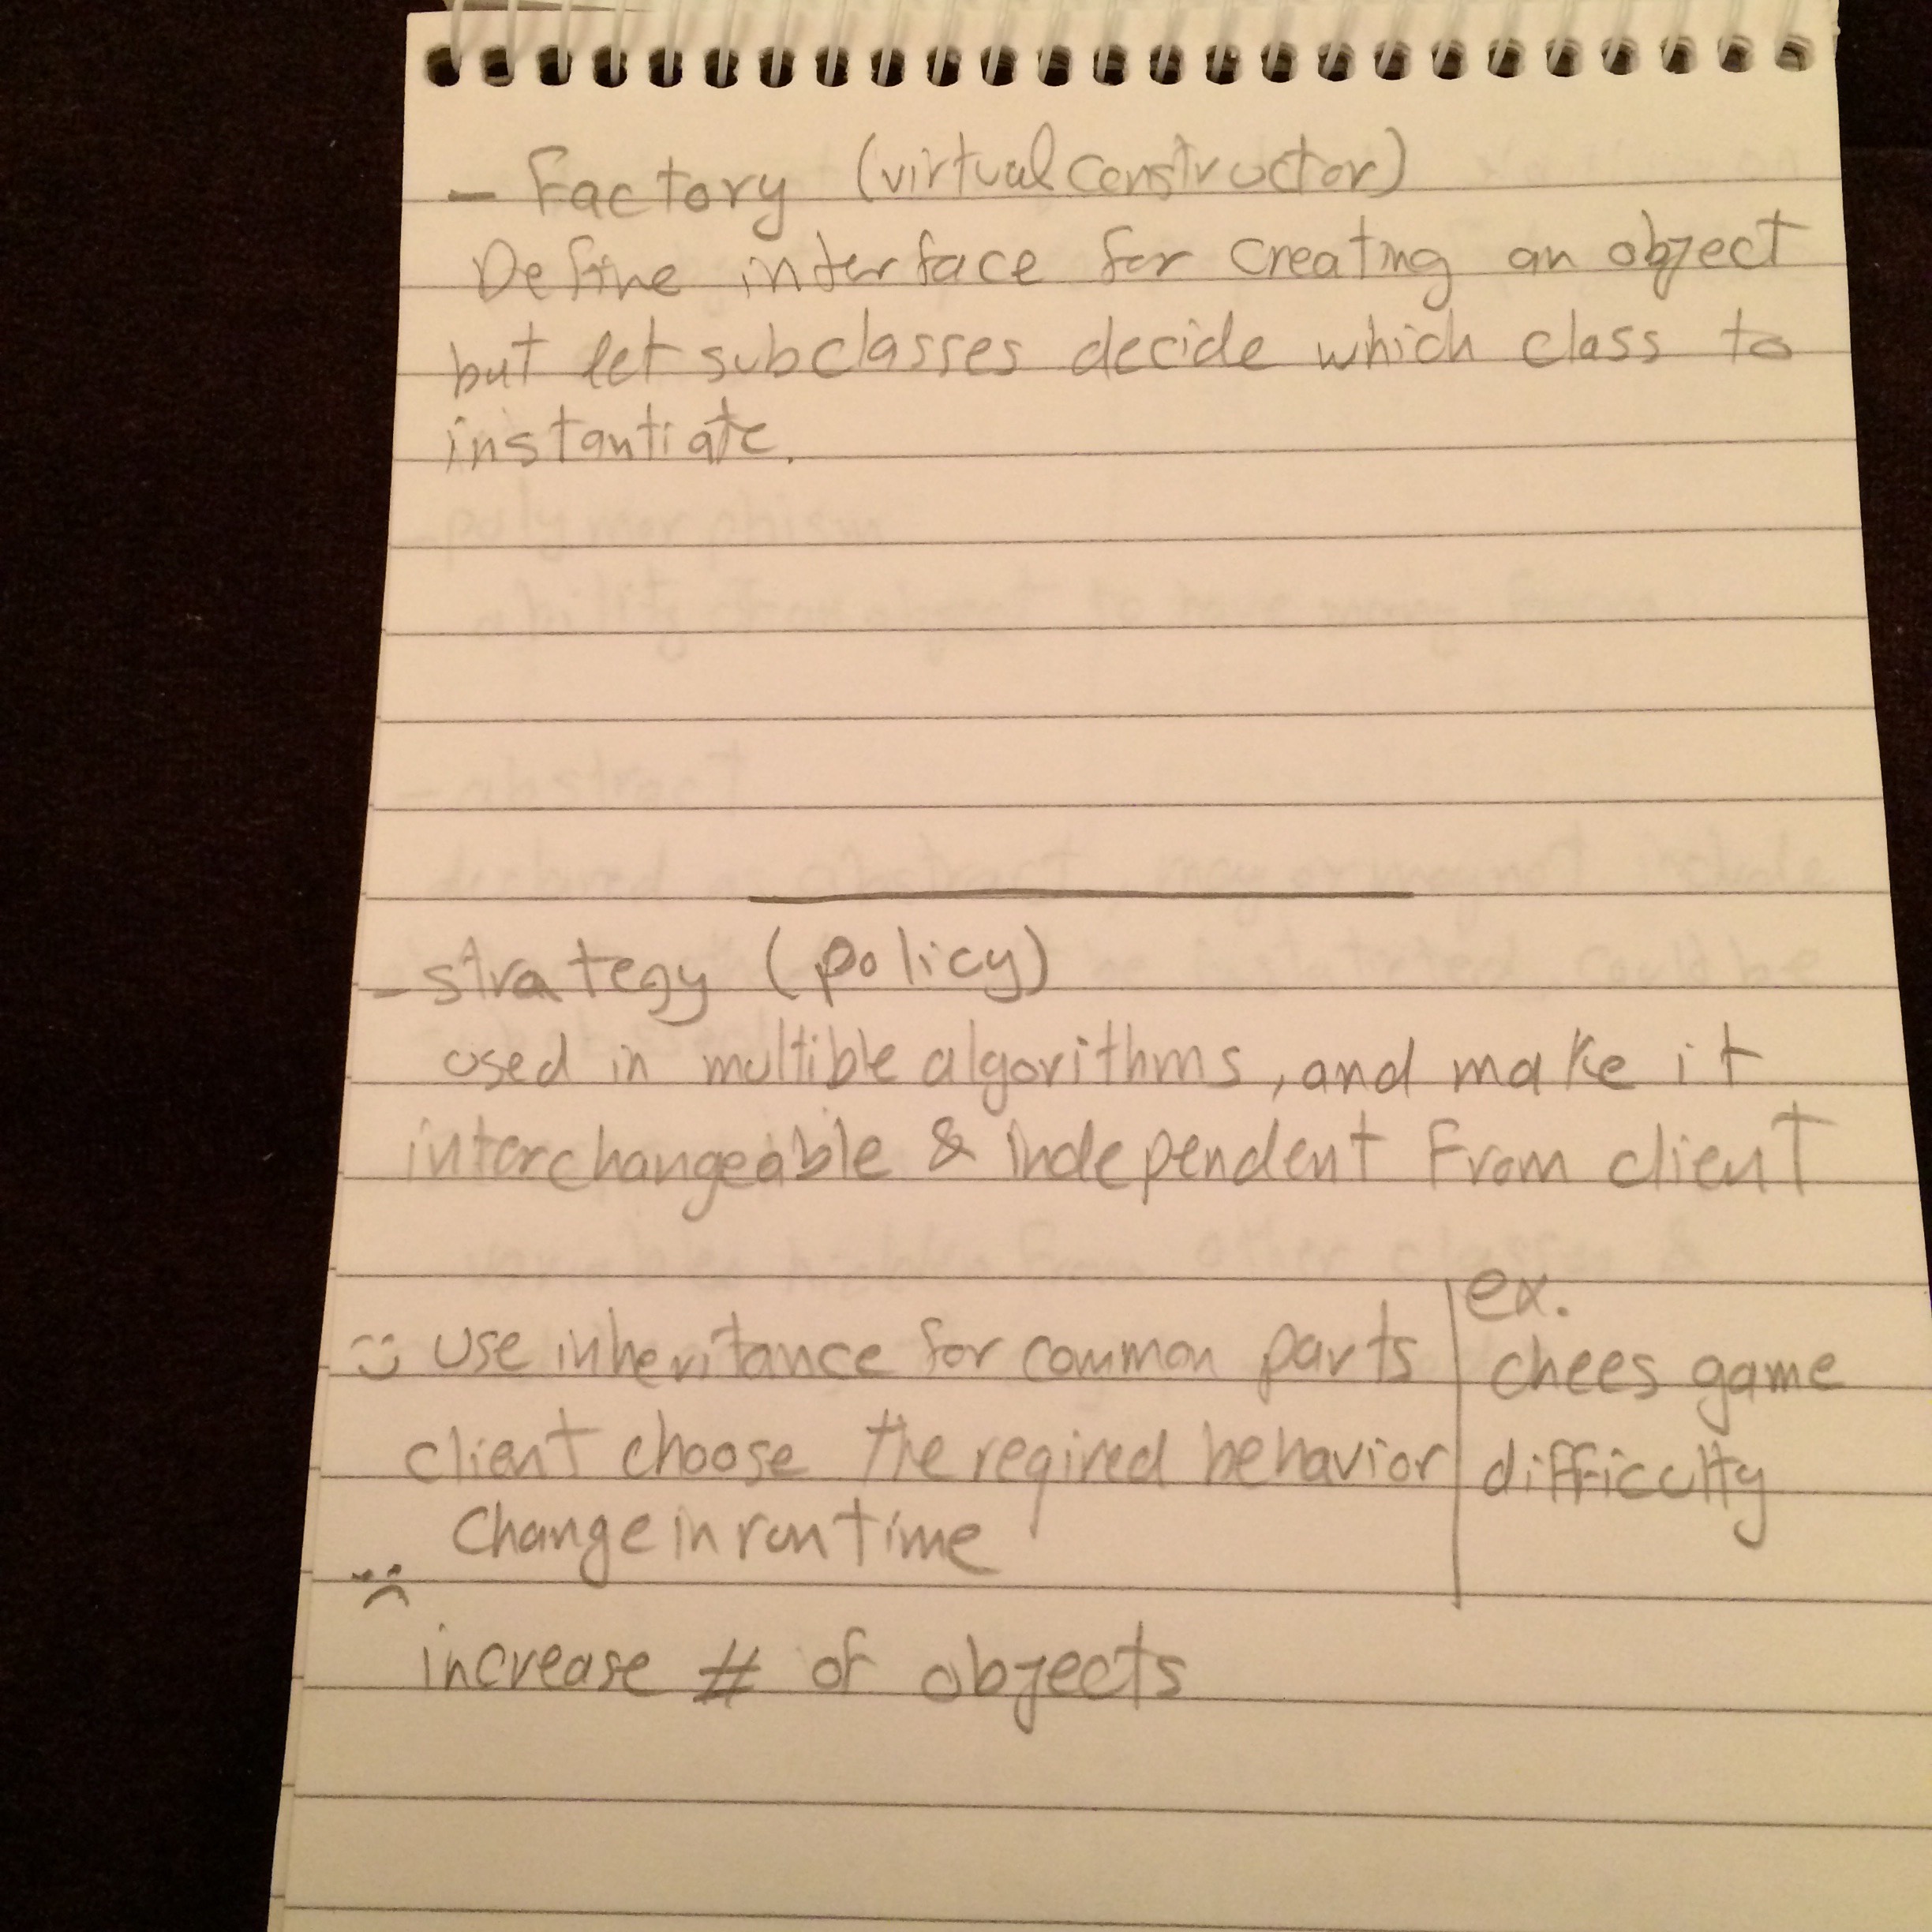 - Factory (virtual constructor)
Define interface for creating an object
but let subclasses decide which class to
instantiate.
- strategy (policy)
used in multible algorithms, and make it
interchangeable & independent From client
use inheritance for common parts
client choose the reqired behavior
change in run time
ex.
chees game
difficulty
increase # of objects